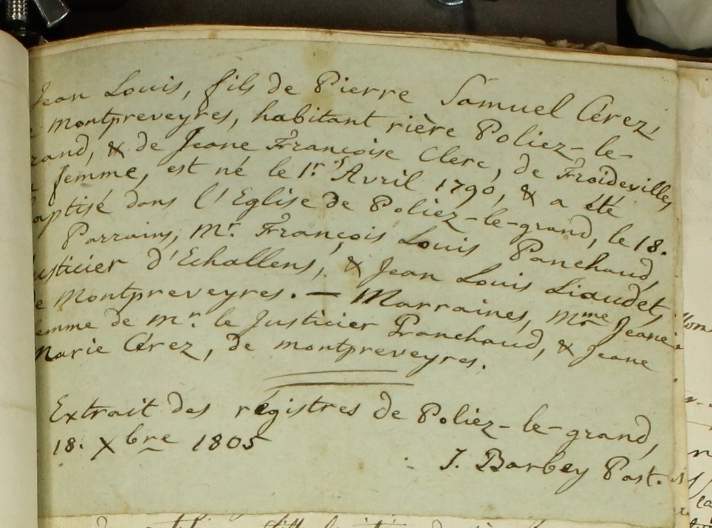 Jean Louis, fils de Pierre Samuel Cérez,
Montpreveyres, habitant rière Poliez-le-
rand, & de Jeane Françoise Clerc, de Froideville,
femme, est né le 1.r Avril 1790, & a été
aptisé dans l'Eglise de Poliez-le-grand, le 18.
Parrains, Mr. François Louis Panchaud,
usticier d'Echallens, & Jean Louis Liaudet,
e Montpreveyres. — Marraines, Mme Jeane
emme de Mr. le Justicier Panchaud, & Jeane
Marie Cérez, de Montpreveyres.
Extrait des régistres de Poliez-le-grand,
18. Xbre 1805
J. Barbey Past.